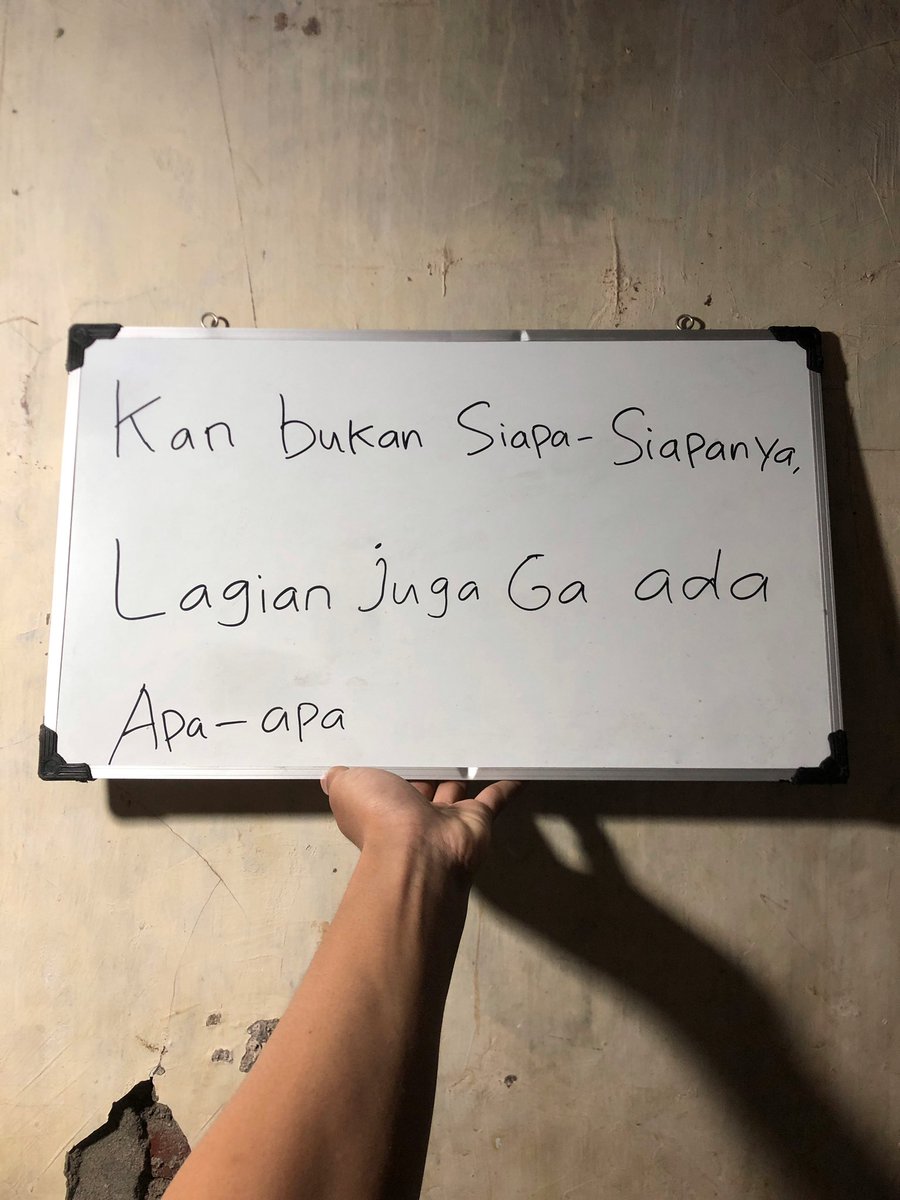 Kan bukan Siapa-Siapanya,
Lagian juga Ga ada
Apa-apa